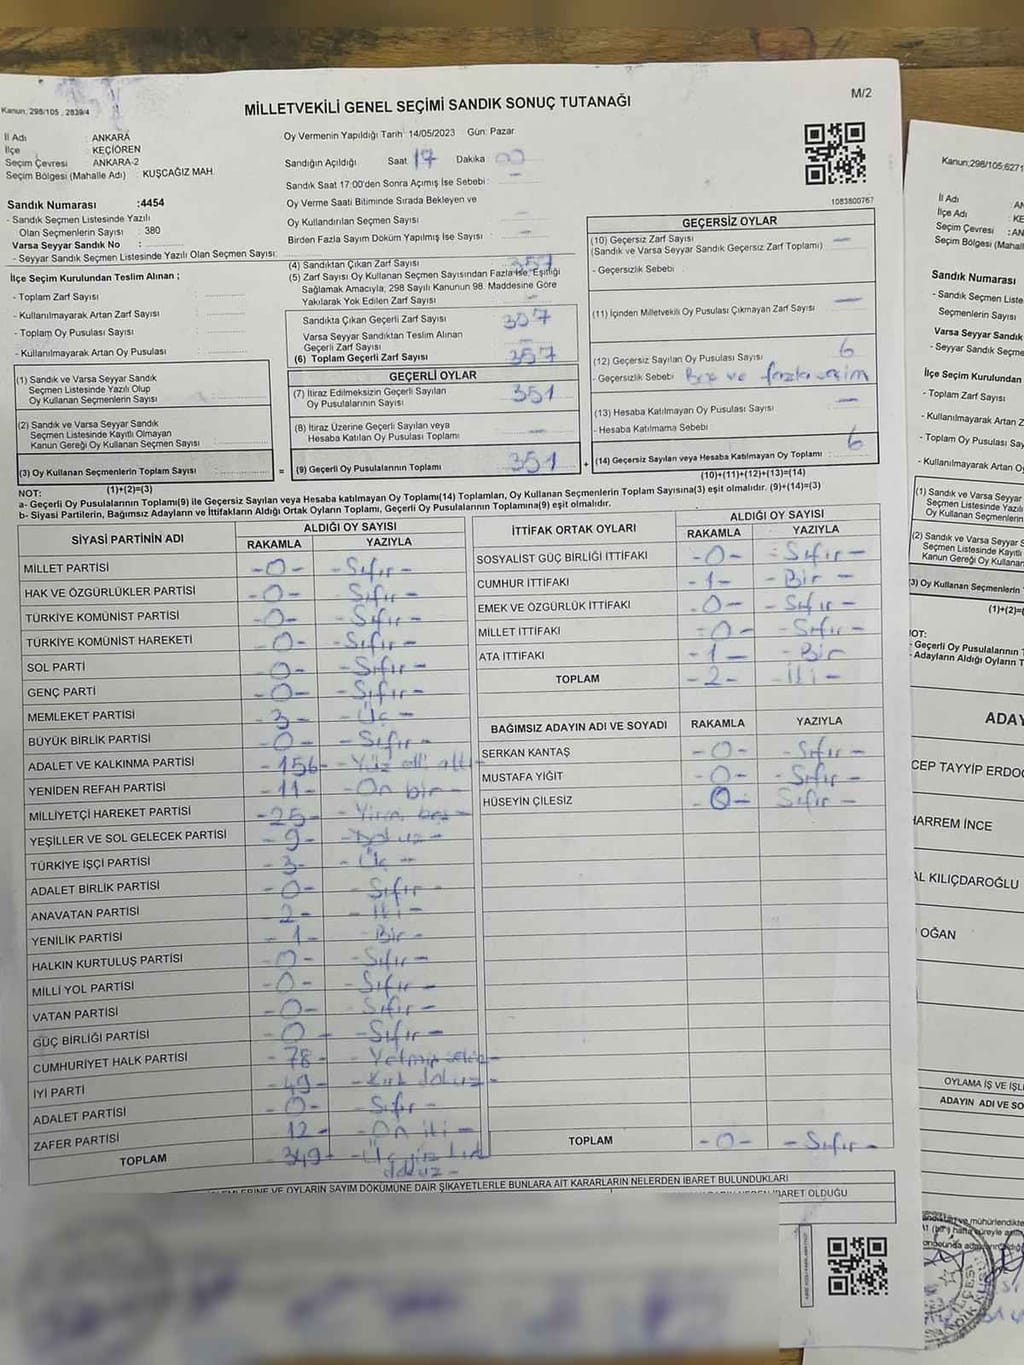 MİLLETVEKİLİ GENEL SEÇİMİ SANDIK SONUÇ TUTANAĞI
M/2
Kanun; 298/105 , 2839/4
İl Adı : ANKARA
İlçe : KEÇİÖREN
Seçim Çevresi : ANKARA-2
Seçim Bölgesi (Mahalle Adı) : KUŞCAĞIZ MAH.
Sandık Numarası :4454
- Sandık Seçmen Listesinde Yazılı
Olan Seçmenlerin Sayısı : 380
Varsa Seyyar Sandık No :
- Seyyar Sandık Seçmen Listesinde Yazılı Olan Seçmen Sayısı:
İlçe Seçim Kurulundan Teslim Alınan ;
- Toplam Zarf Sayısı :
- Kullanılmayarak Artan Zarf Sayısı :
- Toplam Oy Pusulası Sayısı :
- Kullanılmayarak Artan Oy Pusulası :
(1) Sandık ve Varsa Seyyar Sandık
Seçmen Listesinde Yazılı Olup
Oy Kullanan Seçmenlerin Sayısı :
(2) Sandık ve Varsa Seyyar Sandık
Seçmen Listesinde Kayıtlı Olmayan
Kanun Gereği Oy Kullanan Seçmen Sayısı :
(3) Oy Kullanan Seçmenlerin Toplam Sayısı :
(1)+(2)=(3)
Oy Vermenin Yapıldığı Tarih: 14/05/2023 Gün: Pazar
Sandığın Açıldığı Saat 17 Dakika 00
Sandık Saat 17:00'den Sonra Açımış İse Sebebi : —
Oy Verme Saati Bitiminde Sırada Bekleyen ve
Oy Kullandırılan Seçmen Sayısı : —
Birden Fazla Sayım Döküm Yapılmış İse Sayısı : —
(4) Sandıktan Çıkan Zarf Sayısı : 357
(5) Zarf Sayısı Oy Kullanan Seçmen Sayısından Fazla İse, Eşitliği
Sağlamak Amacıyla; 298 Sayılı Kanunun 98. Maddesine Göre
Yakılarak Yok Edilen Zarf Sayısı : —
Sandıkta Çıkan Geçerli Zarf Sayısı : 357
Varsa Seyyar Sandıktan Teslim Alınan
Geçerli Zarf Sayısı :
(6) Toplam Geçerli Zarf Sayısı : 357
GEÇERLİ OYLAR
(7) İtiraz Edilmeksizin Geçerli Sayılan
Oy Pusulalarının Sayısı : 351
(8) İtiraz Üzerine Geçerli Sayılan veya
Hesaba Katılan Oy Pusulası Toplamı : —
= (9) Geçerli Oy Pusulalarının Toplamı : 351
1083800767
GEÇERSİZ OYLAR
(10) Geçersiz Zarf Sayısı : —
(Sandık ve Varsa Seyyar Sandık Geçersiz Zarf Toplamı)
- Geçersizlik Sebebi :
(11) İçinden Milletvekili Oy Pusulası Çıkmayan Zarf Sayısı : —
(12) Geçersiz Sayılan Oy Pusulası Sayısı : 6
- Geçersizlik Sebebi : Boş ve fazla seçim
(13) Hesaba Katılmayan Oy Pusulası Sayısı : —
- Hesaba Katılmama Sebebi :
+ (14) Geçersiz Sayılan veya Hesaba Katılmayan Oy Toplamı : 6
(10)+(11)+(12)+(13)=(14)
NOT:
a- Geçerli Oy Pusulalarının Toplamı(9) ile Geçersiz Sayılan veya Hesaba katılmayan Oy Toplamı(14) Toplamları, Oy Kullanan Seçmenlerin Toplam Sayısına(3) eşit olmalıdır. (9)+(14)=(3)
b- Siyasi Partilerin, Bağımsız Adayların ve İttifakların Aldığı Ortak Oyların Toplamı, Geçerli Oy Pusulalarının Toplamına(9) eşit olmalıdır.
SİYASİ PARTİNİN ADI ALDIĞI OY SAYISI
RAKAMLA YAZIYLA
MİLLET PARTİSİ -0- -Sıfır-
HAK VE ÖZGÜRLÜKLER PARTİSİ -0- -Sıfır-
TÜRKİYE KOMÜNİST PARTİSİ -0- -Sıfır-
TÜRKİYE KOMÜNİST HAREKETİ -0- -Sıfır-
SOL PARTİ -0- -Sıfır-
GENÇ PARTİ -0- -Sıfır-
MEMLEKET PARTİSİ -3- -Üç-
BÜYÜK BİRLİK PARTİSİ -0- -Sıfır-
ADALET VE KALKINMA PARTİSİ -156- -Yüz elli altı-
YENİDEN REFAH PARTİSİ -11- -On bir-
MİLLİYETÇİ HAREKET PARTİSİ -25- -Yirmi beş-
YEŞİLLER VE SOL GELECEK PARTİSİ -9- -Dokuz-
TÜRKİYE İŞÇİ PARTİSİ -3- -Üç-
ADALET BİRLİK PARTİSİ -0- -Sıfır-
ANAVATAN PARTİSİ -2- -İki-
YENİLİK PARTİSİ -1- -Bir-
HALKIN KURTULUŞ PARTİSİ -0- -Sıfır-
MİLLİ YOL PARTİSİ -0- -Sıfır-
VATAN PARTİSİ -0- -Sıfır-
GÜÇ BİRLİĞİ PARTİSİ -0- -Sıfır-
CUMHURİYET HALK PARTİSİ -78- -Yetmiş sekiz-
İYİ PARTİ -49- -Kırk dokuz-
ADALET PARTİSİ -0- -Sıfır-
ZAFER PARTİSİ -12- -On iki-
TOPLAM -349- -Üç yüz kırk
dokuz-
İTTİFAK ORTAK OYLARI ALDIĞI OY SAYISI
RAKAMLA YAZIYLA
SOSYALİST GÜÇ BİRLİĞİ İTTİFAKI -0- -Sıfır-
CUMHUR İTTİFAKI -1- -Bir-
EMEK VE ÖZGÜRLÜK İTTİFAKI -0- -Sıfır-
MİLLET İTTİFAKI -0- -Sıfır-
ATA İTTİFAKI -1- -Bir
TOPLAM -2- -İki-
BAĞIMSIZ ADAYIN ADI VE SOYADI RAKAMLA YAZIYLA
SERKAN KANTAŞ -0- -Sıfır-
MUSTAFA YİĞİT -0- -Sıfır-
HÜSEYİN ÇİLESIZ -0- Sıfır-
TOPLAM -0- -Sıfır-
VE OYLARIN SAYIM DÖKÜMÜNE DAİR ŞİKAYETLERLE BUNLARA AİT KARARLARIN NELERDEN İBARET BULUNDUKLARI
İBARET OLDUĞU
Kanun;298/105;6271
İl Adı : AN
İlçe Adı : KE
Seçim Çevresi : AN
Seçim Bölgesi (Mahal
Sandık Numarası
- Sandık Seçmen Liste
Seçmenlerin Sayısı
Varsa Seyyar Sandık
- Seyyar Sandık Seçme
İlçe Seçim Kurulundan
- Toplam Zarf Sayısı
- Kullanılmayarak Artan
- Toplam Oy Pusulası Say
- Kullanılmayarak Artan O
(1) Sandık ve Varsa Seyyar
Seçmen Listesinde Yazılı
Oy Kullanan Seçmenlerin
(2) Sandık ve Varsa Seyyar S
Seçmen Listesinde Kayıtlı
Kanun Gereği Oy Kullanan S
(3) Oy Kullanan Seçmenlerin
(1)+(2)=(
NOT:
- Geçerli Oy Pusulalarının T
- Adayların Aldığı Oyların T
ADAY
CEP TAYYİP ERDO
HARREM İNCE
AL KILIÇDAROĞLU
OĞAN
OYLAMA İŞ VE İŞL
ADAYIN ADI VE SO